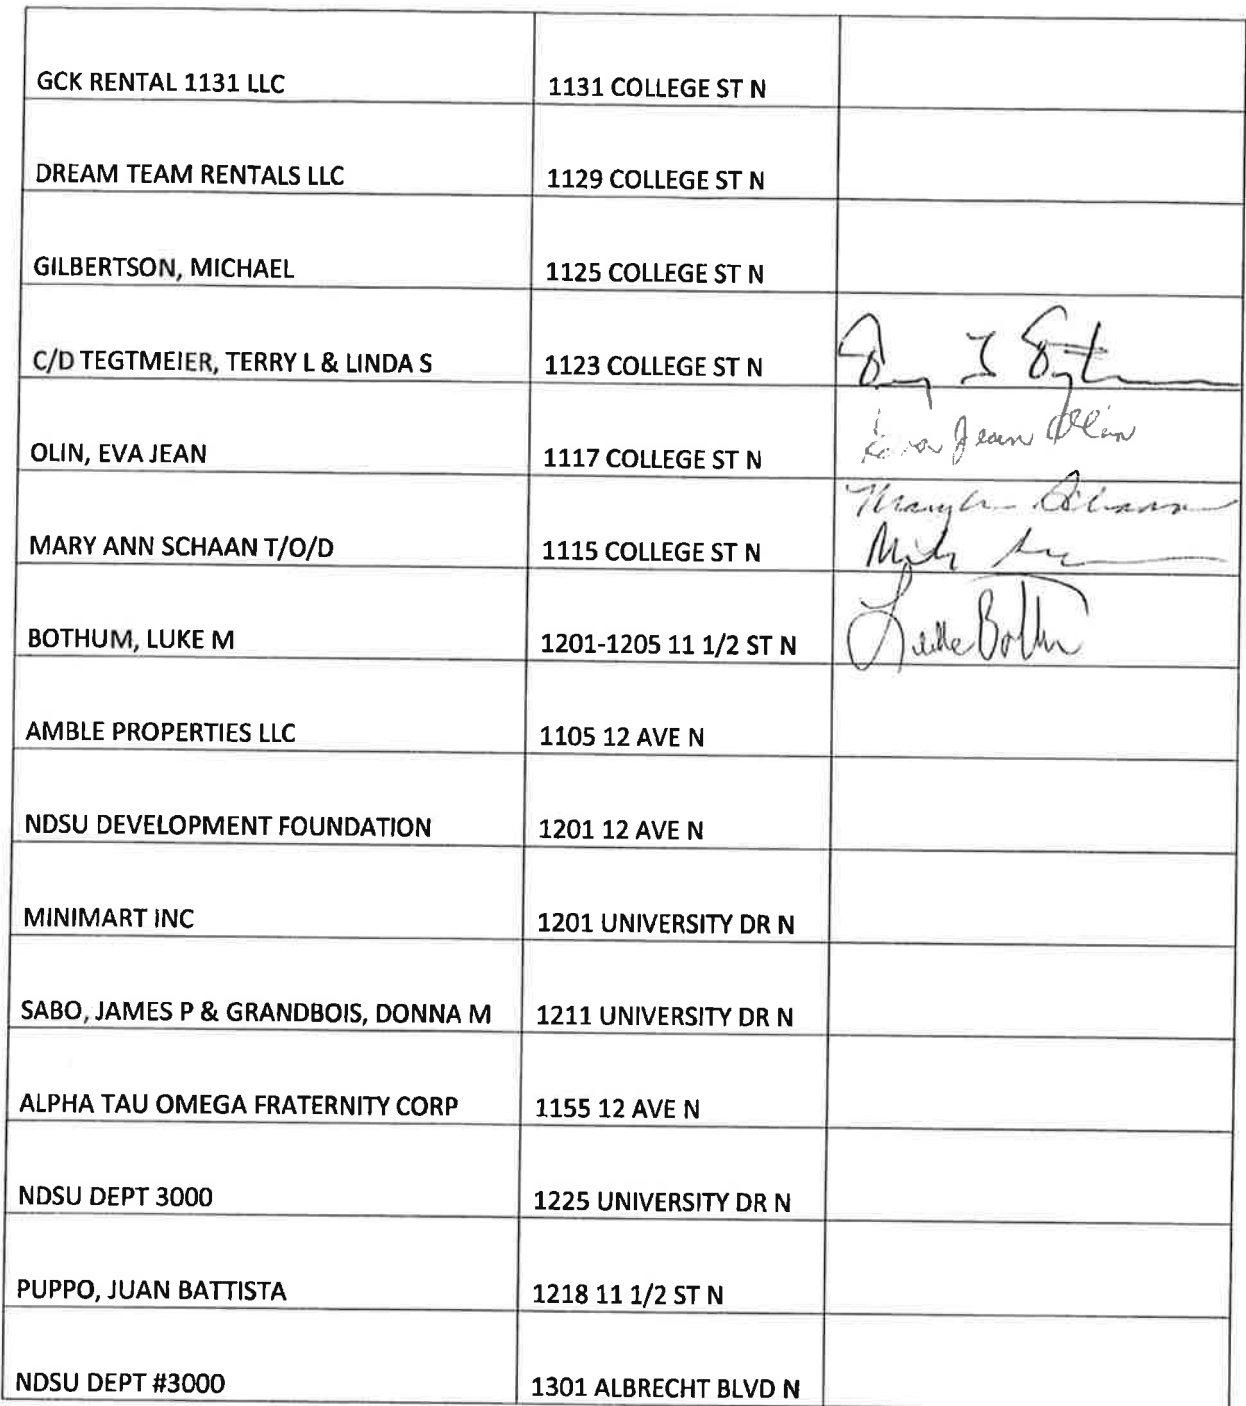 GCK RENTAL 1131 LLC 1131 COLLEGE ST N
DREAM TEAM RENTALS LLC 1129 COLLEGE ST N
GILBERTSON, MICHAEL 1125 COLLEGE ST N
C/D TEGTMEIER, TERRY L & LINDA S 1123 COLLEGE ST N
OLIN, EVA JEAN 1117 COLLEGE ST N Eva Jean Olin
MARY ANN SCHAAN T/O/D 1115 COLLEGE ST N Mary Ann Schaan
BOTHUM, LUKE M 1201-1205 11 1/2 ST N Luke Bothum
AMBLE PROPERTIES LLC 1105 12 AVE N
NDSU DEVELOPMENT FOUNDATION 1201 12 AVE N
MINIMART INC 1201 UNIVERSITY DR N
SABO, JAMES P & GRANDBOIS, DONNA M 1211 UNIVERSITY DR N
ALPHA TAU OMEGA FRATERNITY CORP 1155 12 AVE N
NDSU DEPT 3000 1225 UNIVERSITY DR N
PUPPO, JUAN BATTISTA 1218 11 1/2 ST N
NDSU DEPT #3000 1301 ALBRECHT BLVD N